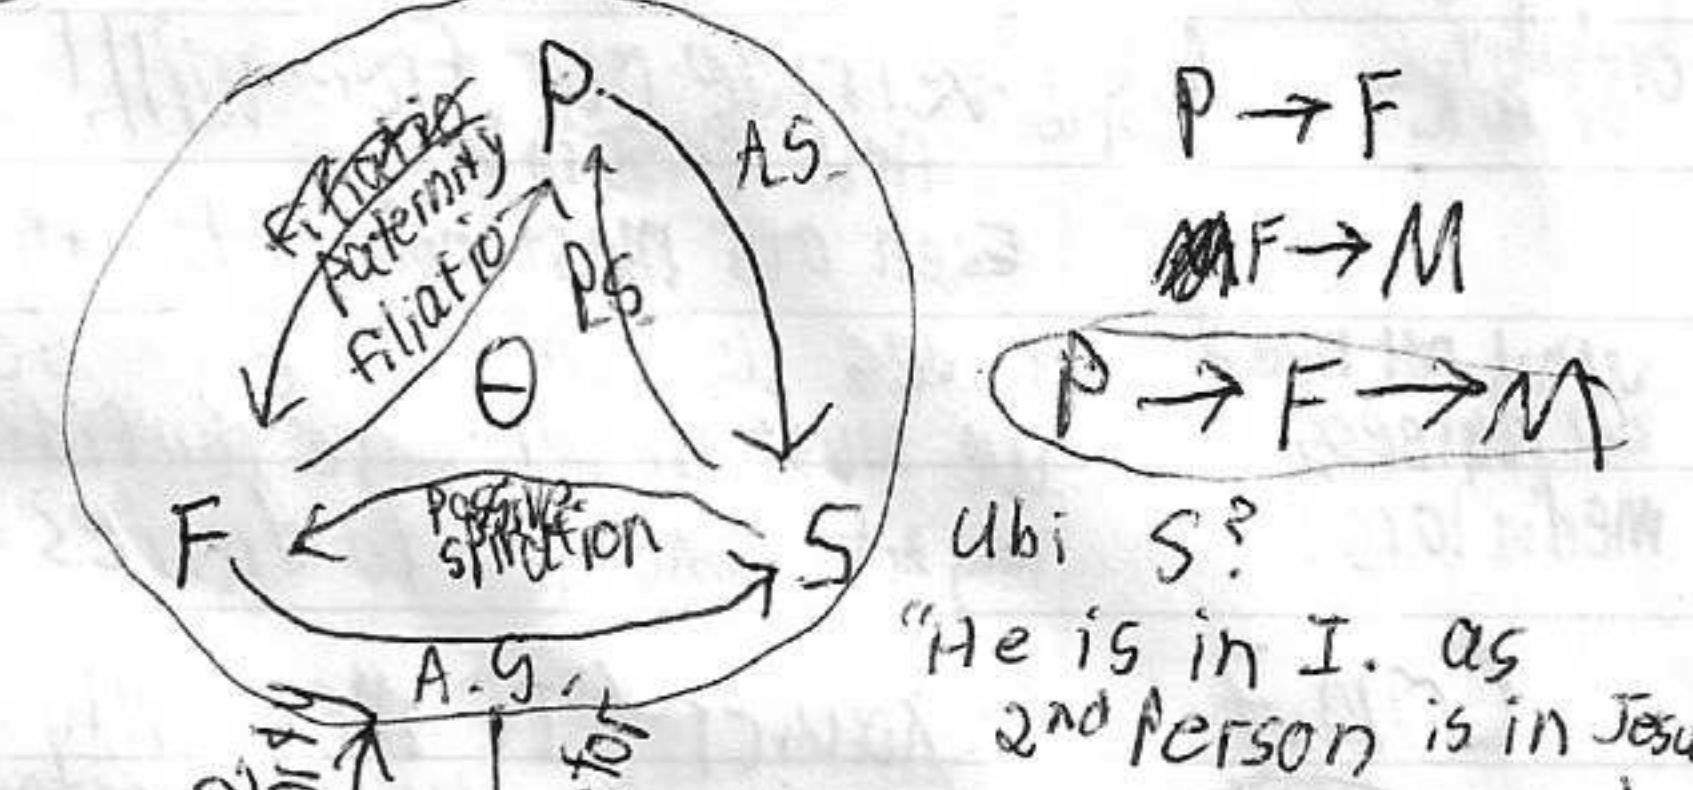 P.
A.S.
Filiatio
paternity
filiation
P.S.
Θ
F
S
passive
spiration
A.S.
P → F
F → M
P → F → M
Ubi S?
"He is in I. as
2nd Person is in Jesu